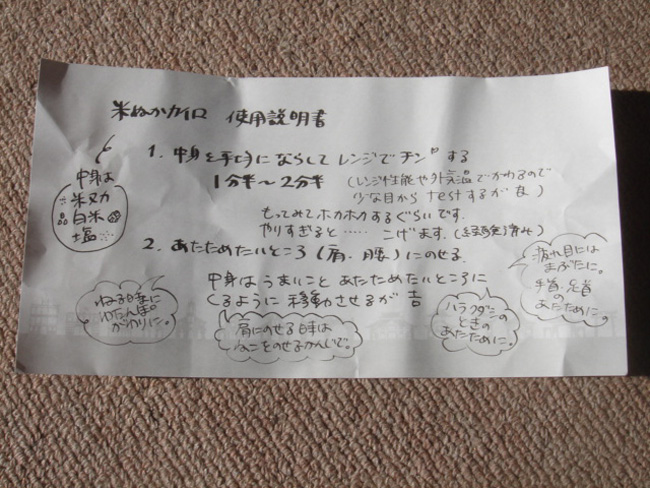 米ぬかカイロ 使用説明書
中身は
米ヌカ
白米
塩
1. 中身を平均にならしてレンジでチンする
1分半〜2分半
(レンジ性能や外気温でかわるので
少な目からtestするが良)
もってみてホカホカするぐらいです.
やりすぎると……こげます.(経験済み)
2. あたためたいところ(肩、腰)にのせる.
中身はうまいこと あたためたいところに
くるように移動させるが吉
ねる時に
ゆたんぽの
がわりに。
肩にのせる時は
ねこをのせるかんじで。
ハラクダシの
ときの
あたために。
疲れ目には
まぶたに。
手首、足首
の
あたために。